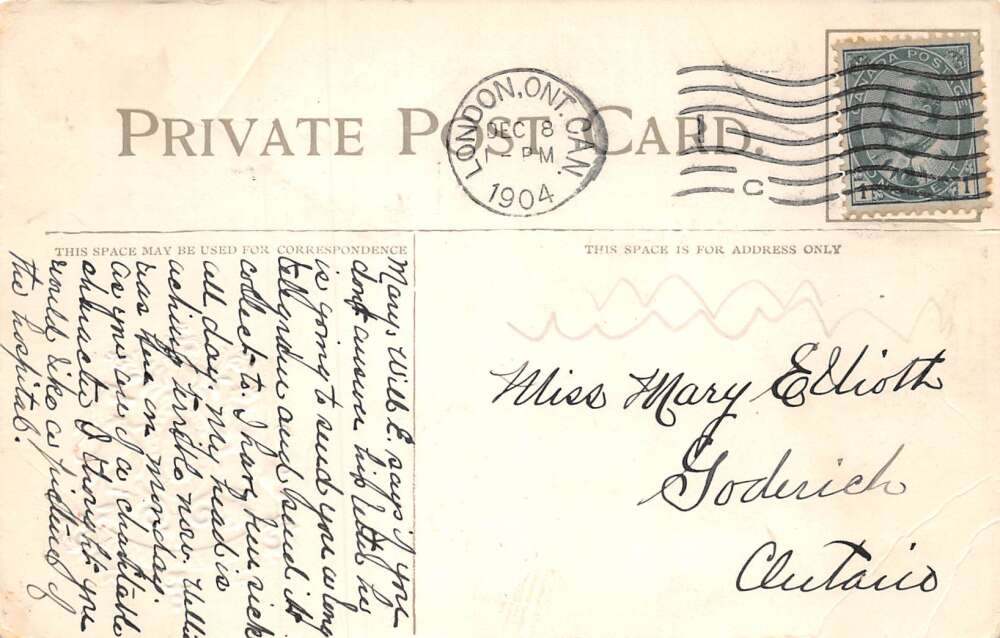 PRIVATE POST CARD.
LONDON, ONT. CAN.
DEC 8
PM
1904
C
CANADA POSTAGE
1 ONE CENT 1
THIS SPACE MAY BE USED FOR CORRESPONDENCE
THIS SPACE IS FOR ADDRESS ONLY
Mary, Will E. says if you
dont answer his letter he
is going to send you a long
telegram and send it
collect to. I have been sick
all day. my head is
aching terrible now.
was here on monday.
as you are of a charitable
character I thought you
would like a picture of
the hospital.
Miss Mary Elliott
Goderich
Ontario